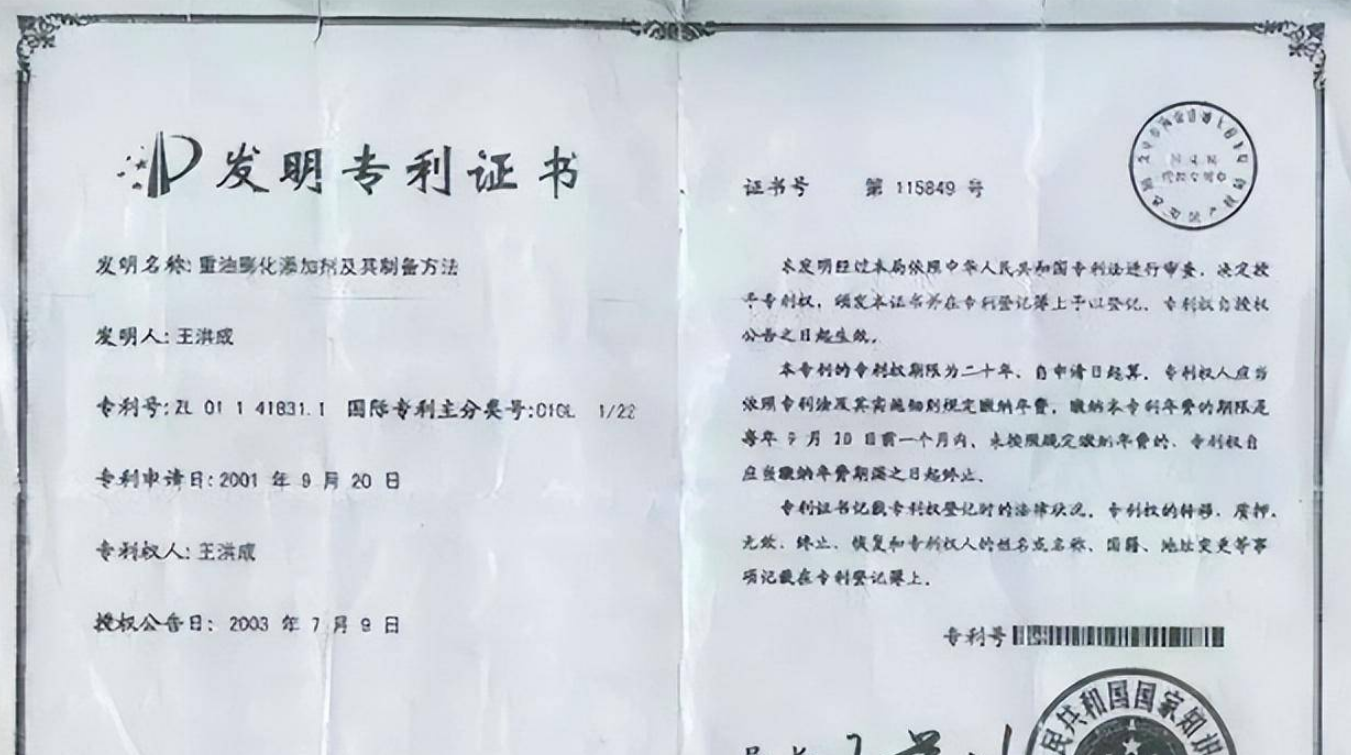 发明专利证书
发明名称:重油膨化添加剂及其制备方法
发明人:王洪成
专利号:ZL 01 1 41831.1 国际专利主分类号:C10L 1/22
专利申请日:2001 年 9 月 20 日
专利权人:王洪成
授权公告日: 2003 年 7 月 9 日
证书号 第 115849 号
本发明经过本局依照中华人民共和国专利法进行审查,决定授
予专利权,颁发本证书并在专利登记簿上予以登记。专利权自授权
公告之日起生效。
本专利的专利权期限为二十年,自申请日起算。专利权人应当
依照专利法及其实施细则规定缴纳年费。缴纳本专利年费的期限是
每年 9 月 20 日前一个月内。未按照规定缴纳年费的,专利权自
应当缴纳年费期满之日起终止。
专利证书记载专利权登记时的法律状况。专利权的转移、质押、
无效、终止、恢复和专利权人的姓名或名称、国籍、地址变更等事
项记载在专利登记簿上。
专利号
民共和国国家知
局长